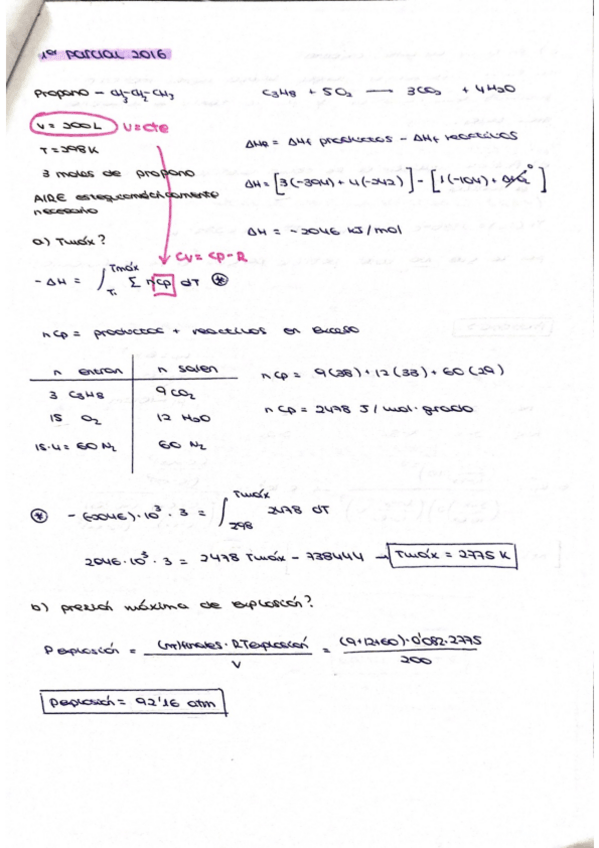 1er PARCIAL 2016
Propano - CH3-CH2-CH3
C3H8 + 5O2 → 3CO2 + 4H2O
V = 200L V=cte
T = 298K
3 moles de propano
AIRE estequiométricamente
necesario
ΔHR = ΔHf productos - ΔHf reactivos
ΔH = [3(-394) + 4(-242)] - [1(-104) + ΔHf O2 0]
ΔH = -2046 KJ/mol
a) Tmáx?
CV = CP-R
-ΔH = ∫ Tmáx Ti Σ n Cp dT *
n Cp = productos + reactivos en exceso
n entran n salen
3 C3H8 9 CO2
15 O2 12 H2O
15·4 = 60 N2 60 N2
n Cp = 9(38) + 12(33) + 60(29)
n Cp = 2478 J/mol·grado
* -(-2046)·10³·3 = ∫ Tmáx 298 2478 dT
2046·10³·3 = 2478 Tmáx - 738444 → Tmáx = 2775 K
b) presión máxima de explosión?
P explosión = (nr)finales · R Texplosión / V = (9+12+60)·0'082·2775 / 200
Pexplosión = 92'16 atm